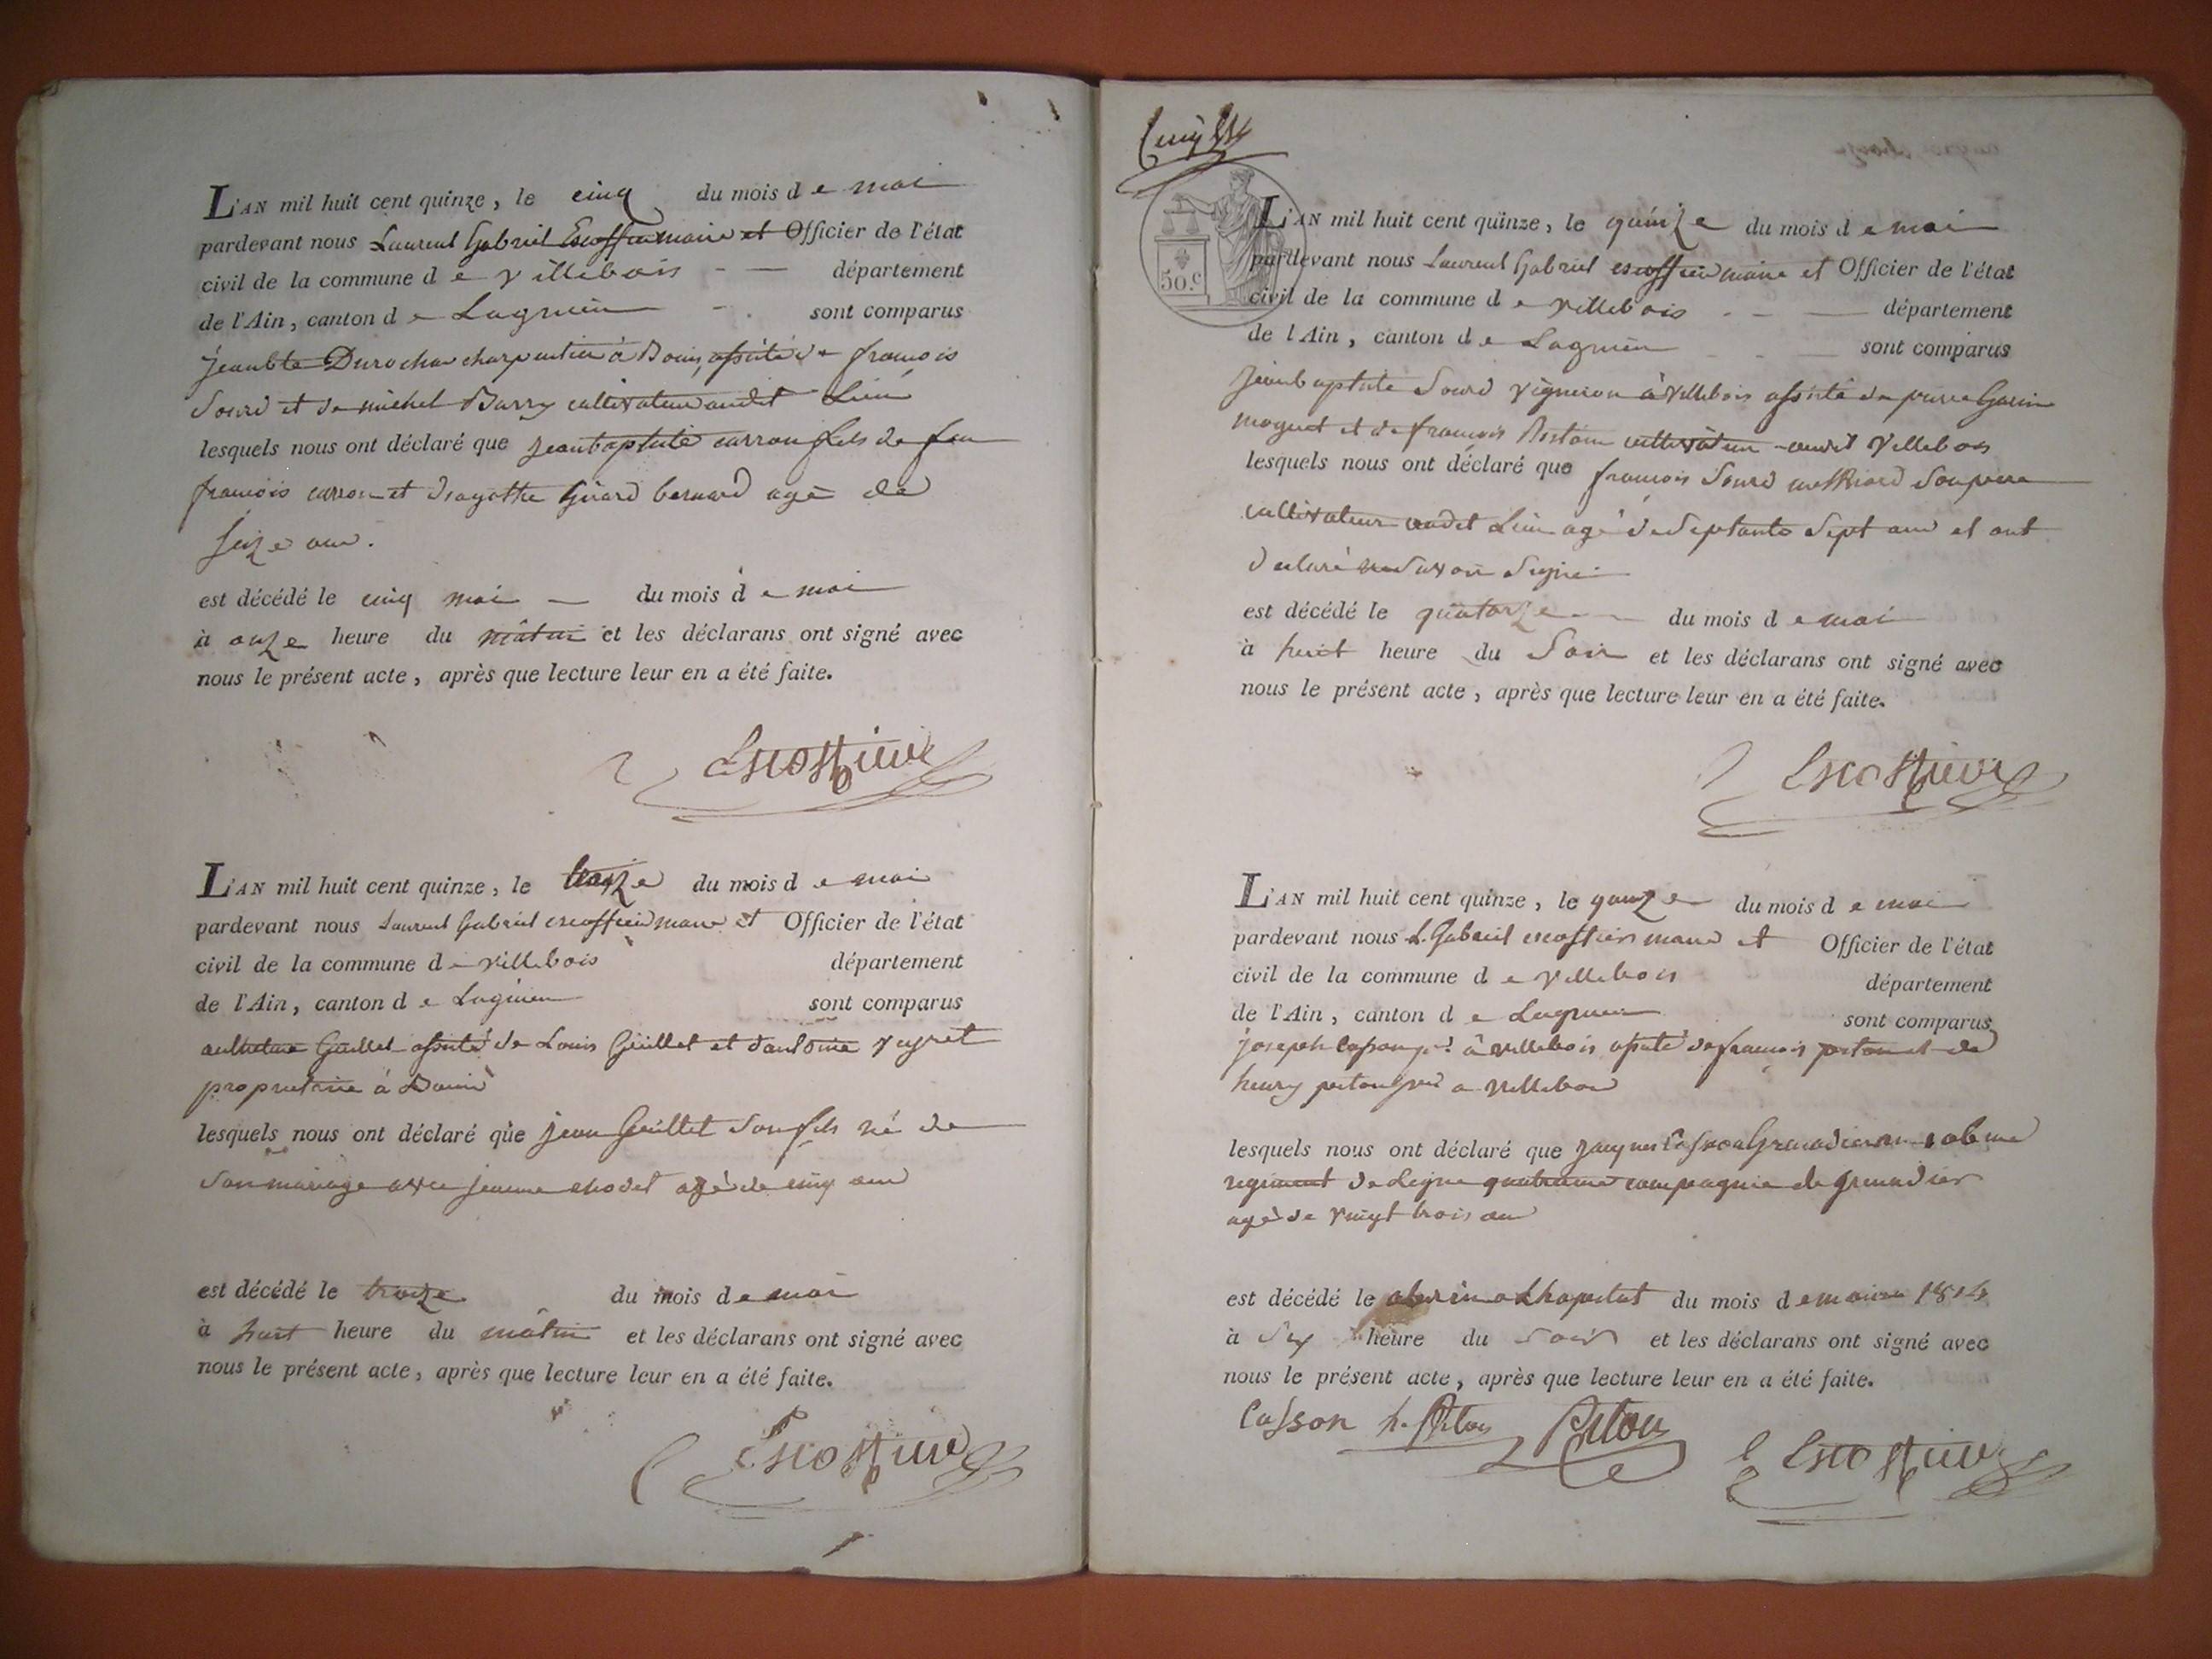 L'AN mil huit cent quinze, le cinq du mois d e mai
pardevant nous Laurent Gabriel Escoffier maire et Officier de l'état
civil de la commune d e villebois département
de l'Ain, canton d e Lagnieu sont comparus
jean bte Durochat charpentier à Bouis, assisté de françois
Sourd et de michel Barry cultivateur audit Lieu
lesquels nous ont déclaré que jean baptiste carron fils de feu
françois carron et d'agathe Girard bernard agé de
seize ans.
est décédé le cinq mai du mois d e mai
à onze heure du mâtin et les déclarans ont signé avec
nous le présent acte, après que lecture leur en a été faite.
Escoffier
L'AN mil huit cent quinze, le treize du mois d e mai
pardevant nous Laurent Gabriel escoffier maire et Officier de l'état
civil de la commune d e villebois département
de l'Ain, canton d e Lagnieu sont comparus
Guillet assisté de Louis Guillet et d'antoine veyret
proprietaire à Bouis
lesquels nous ont déclaré que jean Guillet son fils né de
son mariage avec jeanne chodet agé de cinq ans
est décédé le treize du mois d e mai
à huit heure du mâtin et les déclarans ont signé avec
nous le présent acte, après que lecture leur en a été faite.
Escoffier
50.c
L'AN mil huit cent quinze, le quinze du mois d e mai
pardevant nous Laurent Gabriel escoffier maire et Officier de l'état
civil de la commune d e villebois département
de l Ain, canton d e Lagnieu sont comparus
jean baptiste Sourd vigneron à villebois assisté de pierre Garin
moguet et de françois cultivateur audit villebois
lesquels nous ont déclaré que françois Sourd son pere
cultivateur audit Lieu agé de Septante Sept ans et ont
declaré ne savoir signer
est décédé le quatorze du mois d e mai
à huit heure du Soir et les déclarans ont signé avec
nous le présent acte, après que lecture leur en a été faite.
Escoffier
L'AN mil huit cent quinze, le quinze du mois d e mai
pardevant nous L. Gabriel escoffier maire et Officier de l'état
civil de la commune d e villebois département
de l'Ain, canton d e Lagnieu sont comparus
joseph Casson à villebois assisté de françois piton et de
henry piton à villebois
lesquels nous ont déclaré que jacques Casson Grenadier
regiment de Ligne quatrieme compagnie de grenadier
agé de vingt trois ans
est décédé le a Lhopital du mois d e 1814
à Six heure du soir et les déclarans ont signé avec
nous le présent acte, après que lecture leur en a été faite.
Casson h. Piton Piton Escoffier